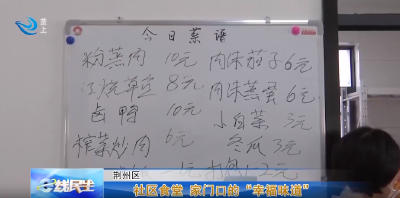 垄上
今日菜谱
粉蒸肉 10元 肉末茄子 6元
红烧草鱼 8元 肉末蒸蛋 6元
卤鸭 10元 小白菜 3元
榨菜炒肉 6元 冬瓜 3元
元 2元
荆州区
民生
社区食堂 家门口的“幸福味道”